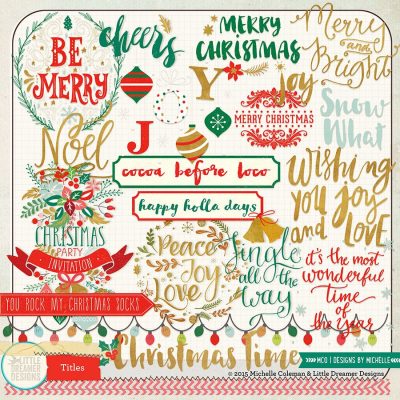 BE
MERRY
cheers
MERRY
CHRISTMAS
Merry
and
Bright
Noel
J
Y
joy
MERRY CHRISTMAS
Snow
What
cocoa before loco
happy holla days
Wishing
you joy
and
LOVE
CHRISTMAS
PARTY
INVITATION
Peace
Joy
Love
Jingle
all the
way
it's the most
wonderful
time
of
the year
YOU ROCK MY CHRISTMAS SOCKS
Christmas Time
LITTLE
DREAMER
DESIGNS
Titles
MCO | DESIGNS BY MICHELLE
© 2015 Michelle Coleman & Little Dreamer Designs